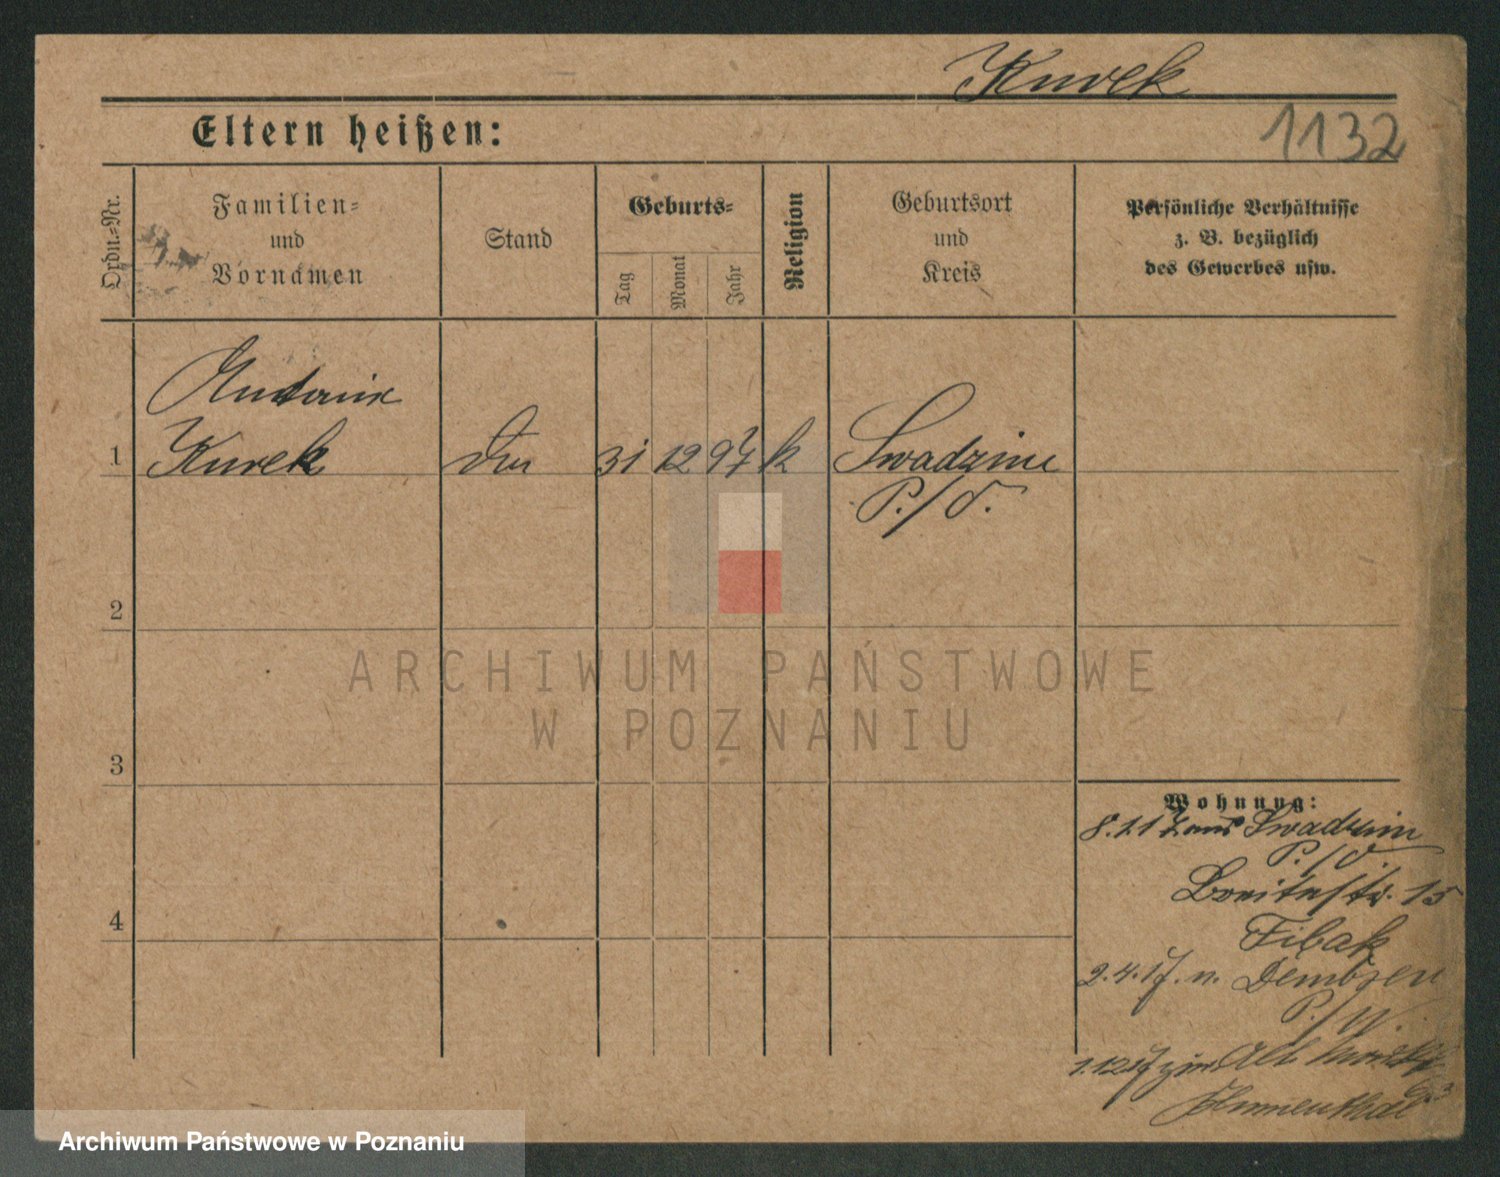 Kurek
Eltern heißen:
1132
Ordn.-Nr.
Familien-
und
Vornamen
Stand
Geburts-
Tag
Monat
Jahr
Religion
Geburtsort
und
Kreis
Persönliche Verhältnisse
z. B. bezüglich
des Gewerbes usw.
Antonie
1 Kurek 31 12 97 k Swadzim
P./O.
2
3
4
Wohnung:
8.1.17 aus Swadzim
P./O.
Breitestr. 15
Fibak
2.4.17. n. Dembsen
P./W.
1.12.17
Blumenthal
ARCHIWUM PAŃSTWOWE
W POZNANIU
Archiwum Państwowe w Poznaniu